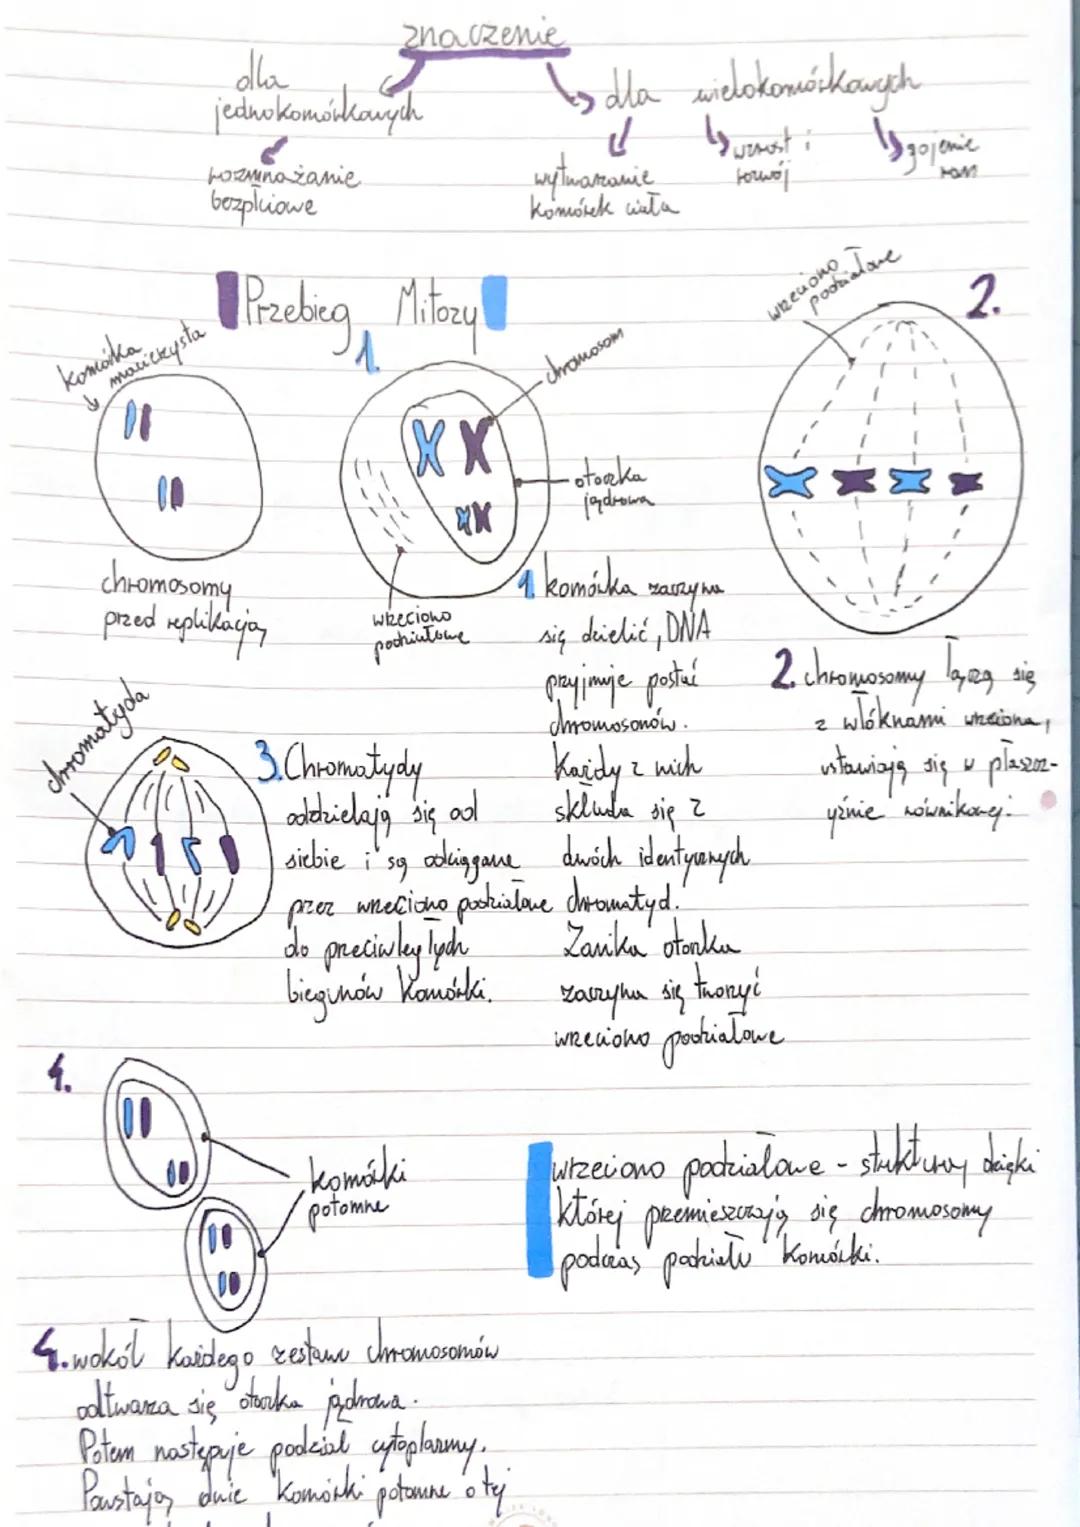 znaczenie
dla
jednokomórkowych
rozmnażanie
bezpłciowe
dla wielokomórkowych
wytwarzanie
komórek ciała
wzrost i
rozwój
gojenie
ran
Przebieg Mitozy
komórka
macierzysta
chromosomy
przed replikacją
1.
chromosom
otoczka
jądrowa
wrzeciono
podziałowe
1. komórka zaczyna
się dzielić, DNA
przyjmuje postać
chromosomów.
Każdy z nich
składa się z
dwóch identycznych
chromatyd.
Zanika otoczka
zaczyna się tworzyć
wrzeciono podziałowe
2.
wrzeciono
podziałowe
2. chromosomy łączą się
z włóknami wrzeciona,
ustawiają się w płaszcz-
yźnie równikowej.
chromatyda
3. Chromatydy
oddzielają się od
siebie i są odciągane
przez wrzeciono podziałowe
do przeciwległych
biegunów komórki.
4.
komórki
potomne
wrzeciono podziałowe - struktury dzięki
której przemieszczają się chromosomy
podczas podziału komórki.
4. wokół każdego zestawu chromosomów
odtwarza się otoczka jądrowa.
Potem następuje podział cytoplazmy.
Powstają dwie komórki potomne o tej